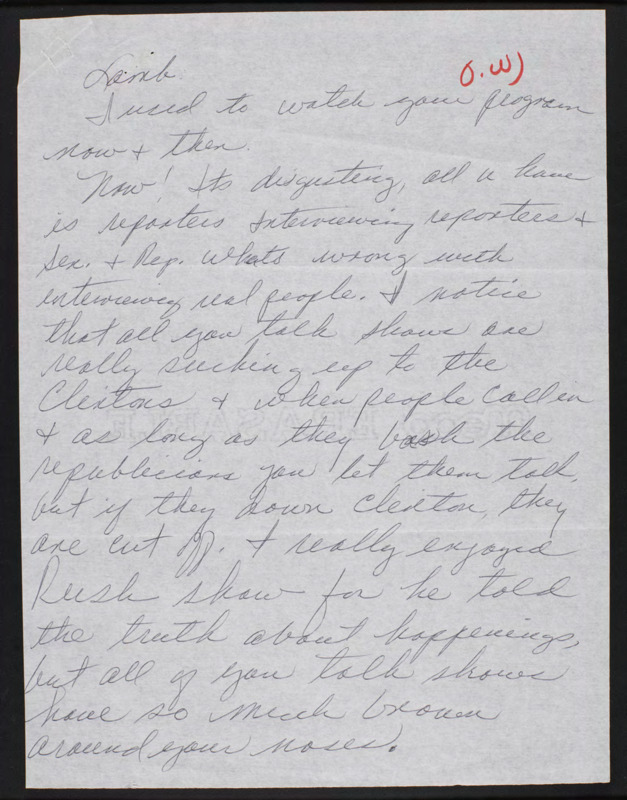 Lamb
O.W)
I used to watch your program
now & then.
Now! Its disgusting, all u have
is reporters interviewing reporters &
Sen. & Rep. Whats wrong with
interviewing real people. I notice
that all you talk shows are
really sucking up to the
Clintons & when people call in
& as long as they bash the
republicians you let them talk,
but if they down Clinton, they
are cut off. I really enjoyed
Rush show for he told
the truth about happenings,
but all of you talk shows
have so much brown
around your noses.